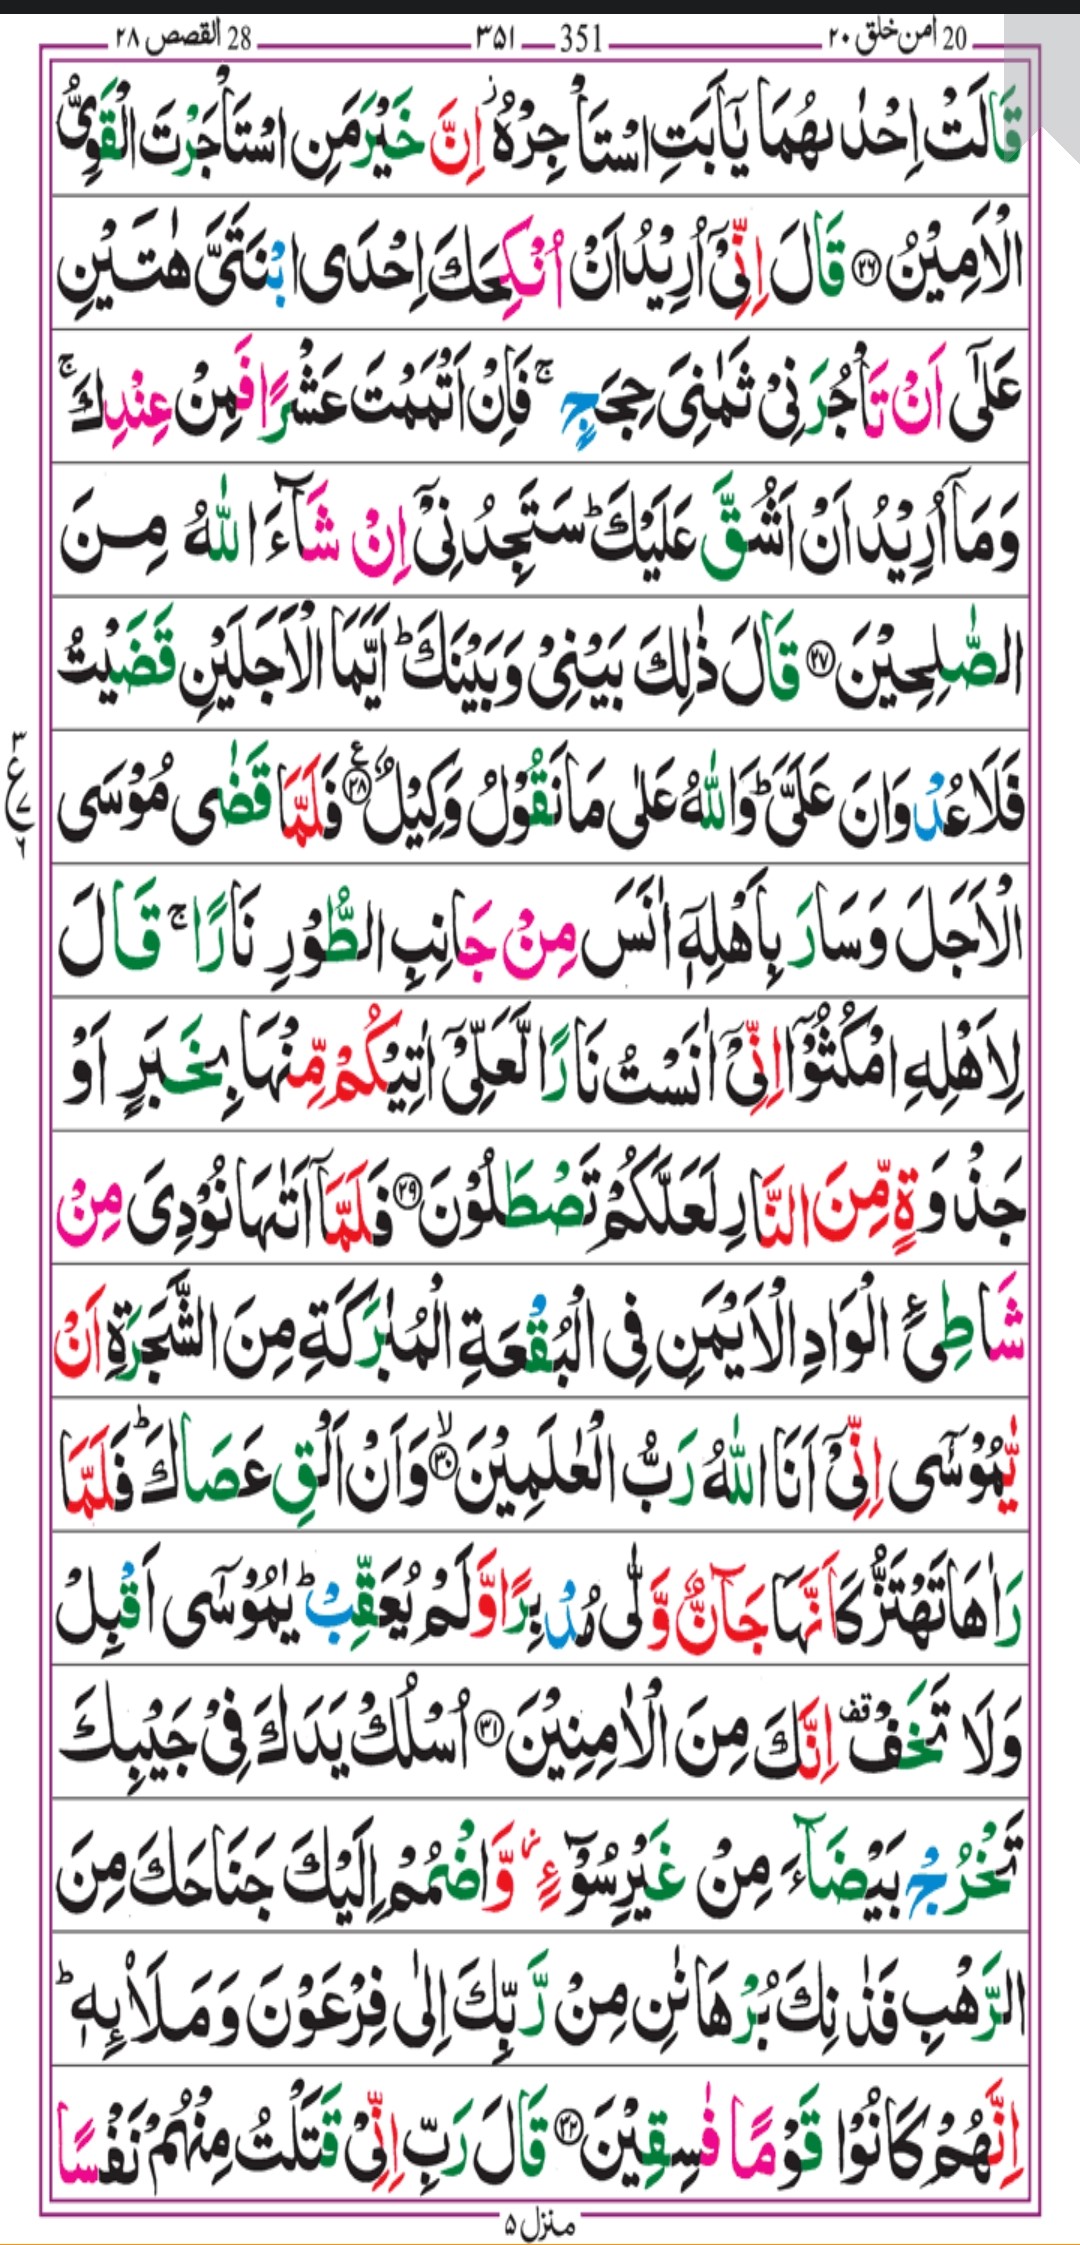 20 امن خلق ۲۰ 351 ۳۵۱ 28 القصص ۲۸
قَالَتْ اِحْدٰىهُمَا يٰۤاَبَتِ اسْتَاْجِرْهُ ؗ اِنَّ خَيْرَ مَنِ اسْتَاْجَرْتَ الْقَوِىُّ
الْاَمِيْنُ ﴿۲۶﴾ قَالَ اِنِّىْۤ اُرِيْدُ اَنْ اُنْكِحَكَ اِحْدَى ابْنَتَىَّ هٰتَيْنِ
عَلٰٓى اَنْ تَاْجُرَنِىْ ثَمٰنِىَ حِجَجٍ ۚ فَاِنْ اَتْمَمْتَ عَشْرًا فَمِنْ عِنْدِكَ ۚ
وَمَاۤ اُرِيْدُ اَنْ اَشُقَّ عَلَيْكَ ؕ سَتَجِدُنِىْۤ اِنْ شَآءَ اللّٰهُ مِنَ
الصّٰلِحِيْنَ ﴿۲۷﴾ قَالَ ذٰلِكَ بَيْنِىْ وَبَيْنَكَ ؕ اَيَّمَا الْاَجَلَيْنِ قَضَيْتُ
فَلَا عُدْوَانَ عَلَىَّ ؕ وَاللّٰهُ عَلٰى مَا نَقُوْلُ وَكِيْلٌ ﴿۲۸﴾ ع فَلَمَّا قَضٰى مُوْسَى
۳ ع ۷ ۶
الْاَجَلَ وَسَارَ بِاَهْلِهٖۤ اٰنَسَ مِنْ جَانِبِ الطُّوْرِ نَارًا ۚ قَالَ
لِاَهْلِهِ امْكُثُوْۤا اِنِّىْۤ اٰنَسْتُ نَارًا لَّعَلِّىْۤ اٰتِيْكُمْ مِّنْهَا بِخَبَرٍ اَوْ
جَذْوَةٍ مِّنَ النَّارِ لَعَلَّكُمْ تَصْطَلُوْنَ ﴿۲۹﴾ فَلَمَّاۤ اَتٰٮهَا نُوْدِىَ مِنْ
شَاطِئِ الْوَادِ الْاَيْمَنِ فِى الْبُقْعَةِ الْمُبٰرَكَةِ مِنَ الشَّجَرَةِ اَنْ
يّٰمُوْسٰٓى اِنِّىْۤ اَنَا اللّٰهُ رَبُّ الْعٰلَمِيْنَ ﴿۳۰﴾ ۙ وَاَنْ اَلْقِ عَصَاكَ ؕ فَلَمَّا
رَاٰهَا تَهْتَزُّ كَاَنَّهَا جَآنٌّ وَّلّٰى مُدْبِرًا وَّلَمْ يُعَقِّبْ ؕ يٰمُوْسٰٓى اَقْبِلْ
وَلَا تَخَفْ قف اِنَّكَ مِنَ الْاٰمِنِيْنَ ﴿۳۱﴾ اُسْلُكْ يَدَكَ فِىْ جَيْبِكَ
تَخْرُجْ بَيْضَآءَ مِنْ غَيْرِ سُوْٓءٍ ؗ وَّاضْمُمْ اِلَيْكَ جَنَاحَكَ مِنَ
الرَّهْبِ فَذٰنِكَ بُرْهَانٰنِ مِنْ رَّبِّكَ اِلٰى فِرْعَوْنَ وَمَلَا۟ئِهٖ ؕ
اِنَّهُمْ كَانُوْا قَوْمًا فٰسِقِيْنَ ﴿۳۲﴾ قَالَ رَبِّ اِنِّىْ قَتَلْتُ مِنْهُمْ نَفْسًا
منزل ۵